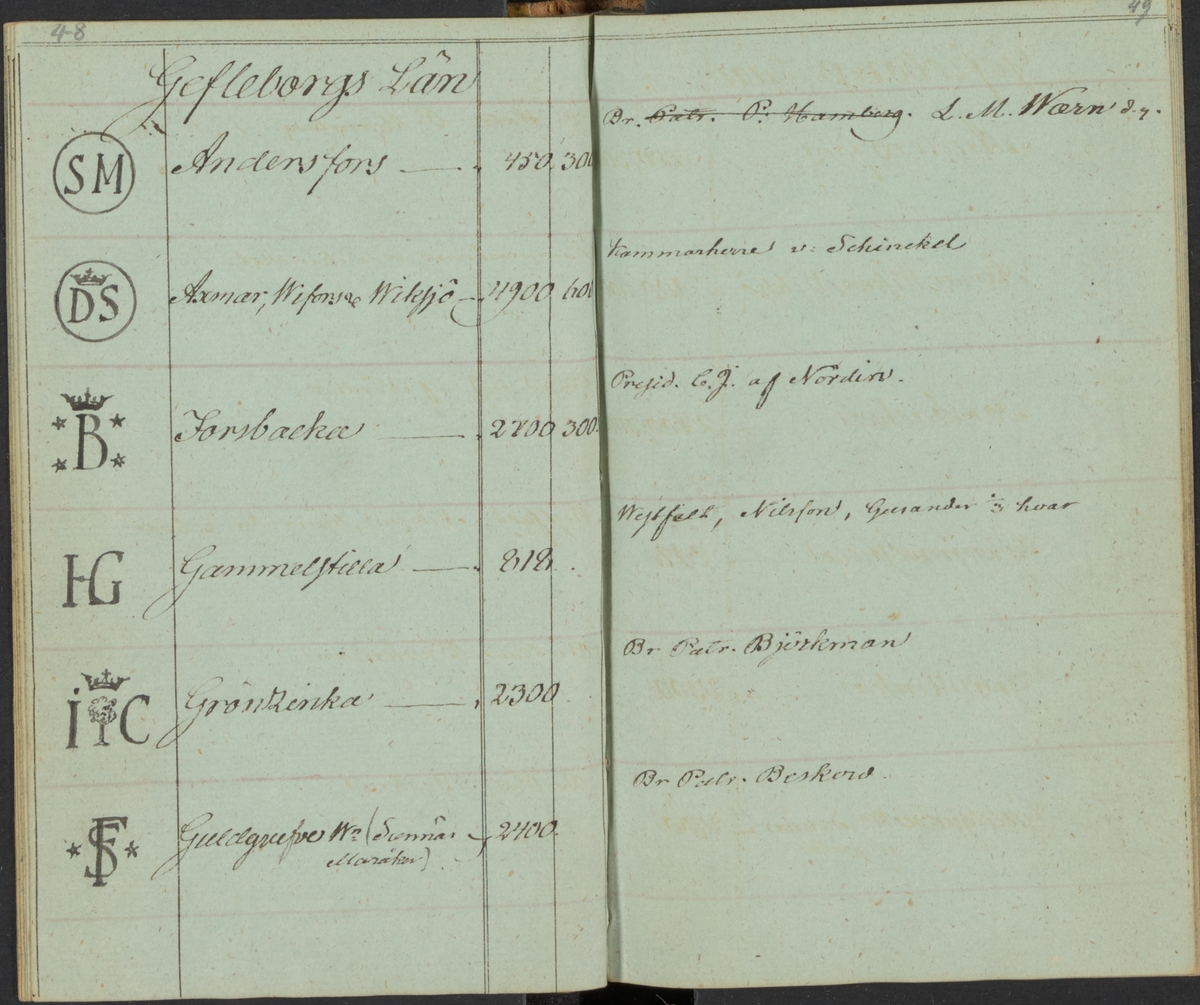 48
49
Gefleborgs Län
Br. Patr. P. Hamberg. L. M. Wærn d.y.
SM Andersfors — 450. 300
Kammarherre v. Schinckel
DS Axmar, Wifors & Wiksjö — 4900 600
Presid. C. J. af Nordin.
B Forsbacka — 2700 300.
Westfelt, Nilsson, Gesander 1/3 hvar
HG Gammelstilla — 818.
Br Patr. Björkman
I C Grönsinka — 2300
Br Patr. Beskow.
SF Guldgrufve Wn (Sunnäs
Maråker) 2400.